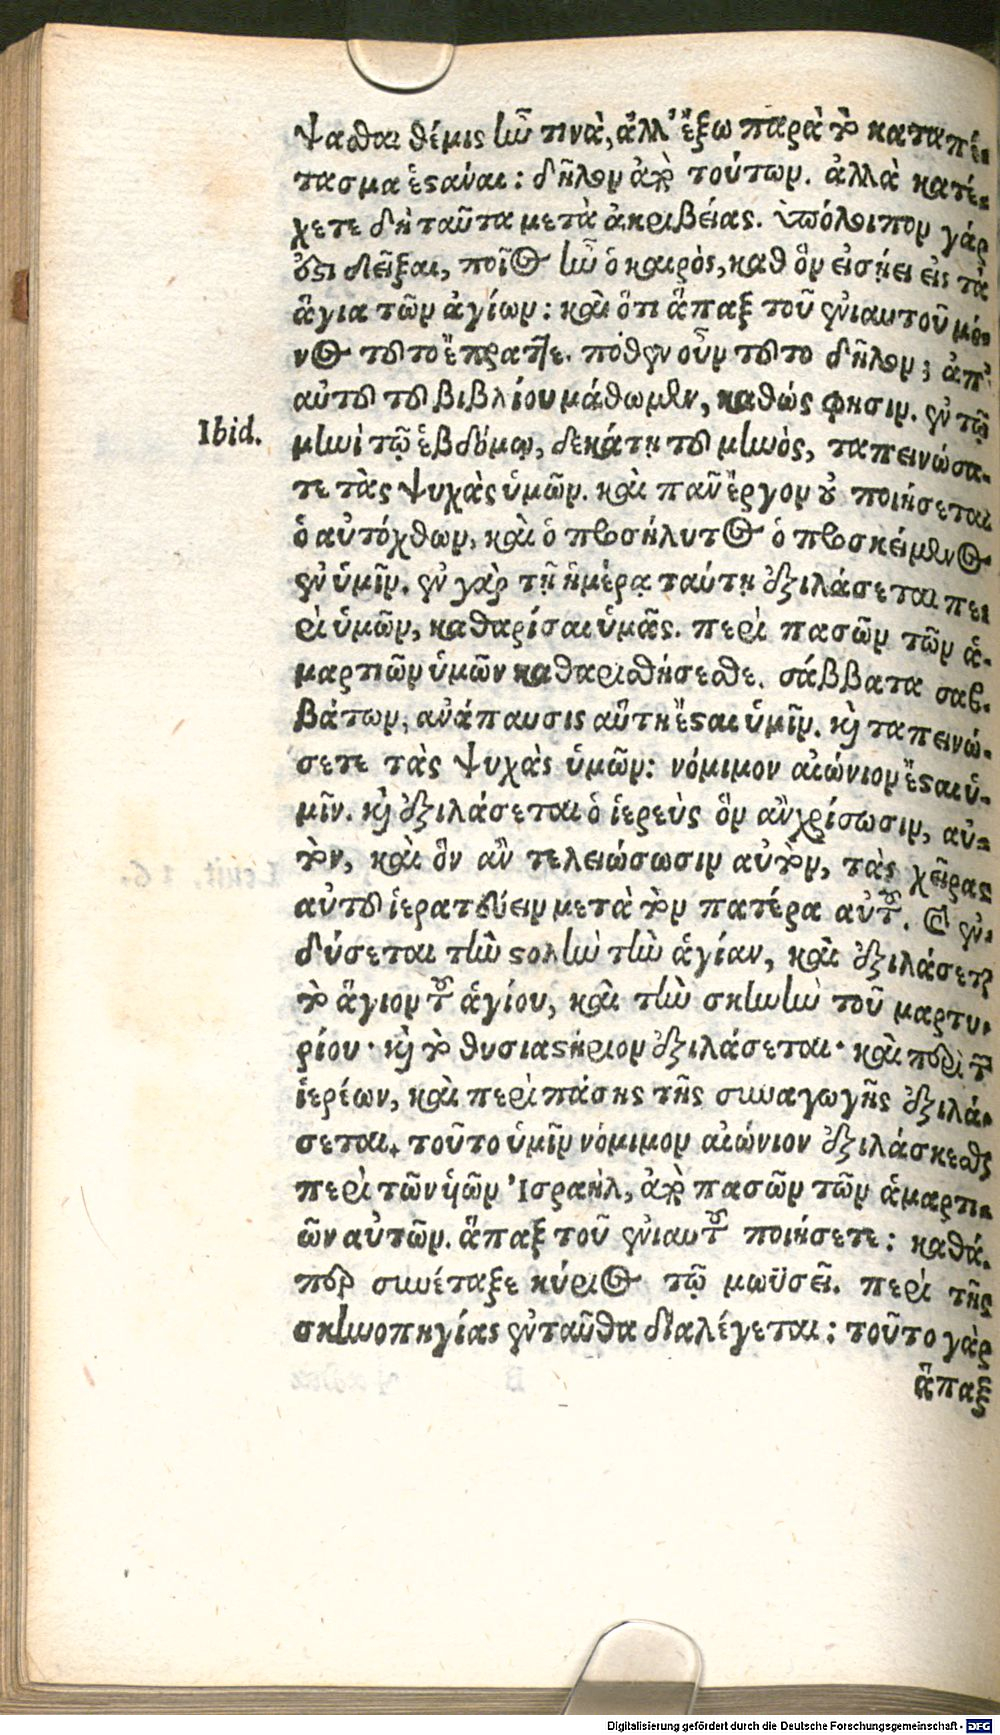 ψαθαι θέμις ἦν τινὰ, ἀλλ' ἔξω παρὰ τὸ καταπέ-
τασμα ἑστάναι: δῆλον ἀπὸ τούτων. ἀλλὰ κατέ-
χετε δὴ ταῦτα μετὰ ἀκριβείας. ὑπόλοιπον γάρ
ἐστι δεῖξαι, ποῖος ἦν ὁ καιρὸς, καθ ὃν εἰσῄει εἰς τὰ
ἅγια τῶν ἁγίων: καὶ ὅτι ἅπαξ τοῦ ἐνιαυτοῦ μό-
νος τοῦτο ἔπραττε. πόθεν οὖν τοῦτο δῆλον; ἀπ'
αὐτοῦ τοῦ βιβλίου μάθωμεν, καθώς φησιν. ἐν τῷ
Ibid. μηνὶ τῷ ἑβδόμῳ, δεκάτῃ τοῦ μηνὸς, ταπεινώσα-
τε τὰς ψυχὰς ὑμῶν. καὶ πᾶν ἔργον οὐ ποιήσεται
ὁ αὐτόχθων, καὶ ὁ προσήλυτος ὁ προσκείμενος
ἐν ὑμῖν. ἐν γὰρ τῇ ἡμέρᾳ ταύτῃ ἐξιλάσεται πε-
ρὶ ὑμῶν, καθαρίσαι ὑμᾶς. περὶ πασῶν τῶν ἁ-
μαρτιῶν ὑμῶν καθαρισθήσεσθε. σάββατα σαβ-
βάτων, ἀνάπαυσις αὕτη ἔσται ὑμῖν. καὶ ταπεινώ-
σετε τὰς ψυχὰς ὑμῶν: νόμιμον αἰώνιον ἔσται ὑ-
μῖν. καὶ ἐξιλάσεται ὁ ἱερεὺς ὃν ἂν χρίσωσιν, αὐ-
τὸν, καὶ ὃν ἂν τελειώσωσιν αὐτὸν, τὰς χεῖρας
αὐτοῦ ἱερατεύειν μετὰ τὸν πατέρα αὐτοῦ. καὶ ἐν-
δύσεται τὴν στολὴν τὴν ἁγίαν, καὶ ἐξιλάσεται
τὸ ἅγιον τοῦ ἁγίου, καὶ τὴν σκηνὴν τοῦ μαρτυ-
ρίου· καὶ τὸ θυσιαστήριον ἐξιλάσεται· καὶ περὶ τῶν
ἱερέων, καὶ περὶ πάσης τῆς συναγωγῆς ἐξιλά-
σεται. τοῦτο ὑμῖν νόμιμον αἰώνιον ἐξιλάσκεσθαι
περὶ τῶν υἱῶν Ἰσραὴλ, ἀπὸ πασῶν τῶν ἁμαρτι-
ῶν αὐτῶν. ἅπαξ τοῦ ἐνιαυτοῦ ποιήσετε: καθά-
περ συνέταξε κύριος τῷ μωϋσεῖ. περὶ τῆς
σκηνοπηγίας ἐνταῦθα διαλέγεται: τοῦτο γὰρ
ἅπαξ
Digitalisierung gefördert durch die Deutsche Forschungsgemeinschaft - DFG